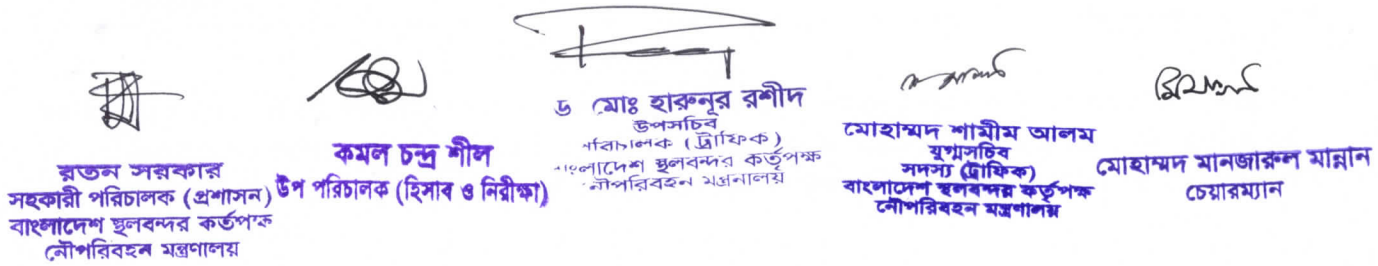 রতন সরকার
সহকারী পরিচালক (প্রশাসন)
বাংলাদেশ স্থলবন্দর কর্তৃপক্ষ
নৌপরিবহন মন্ত্রণালয়
কমল চন্দ্র শীল
উপ পরিচালক (হিসাব ও নিরীক্ষা)
ড মোঃ হারুনূর রশীদ
উপসচিব
পরিচালক (ট্রাফিক)
বাংলাদেশ স্থলবন্দর কর্তৃপক্ষ
নৌপরিবহন মন্ত্রনালয়
মোহাম্মদ শামীম আলম
যুগ্মসচিব
সদস্য (ট্রাফিক)
বাংলাদেশ স্থলবন্দর কর্তৃপক্ষ
নৌপরিবহন মন্ত্রণালয়
মোহাম্মদ মানজারুল মান্নান
চেয়ারম্যান